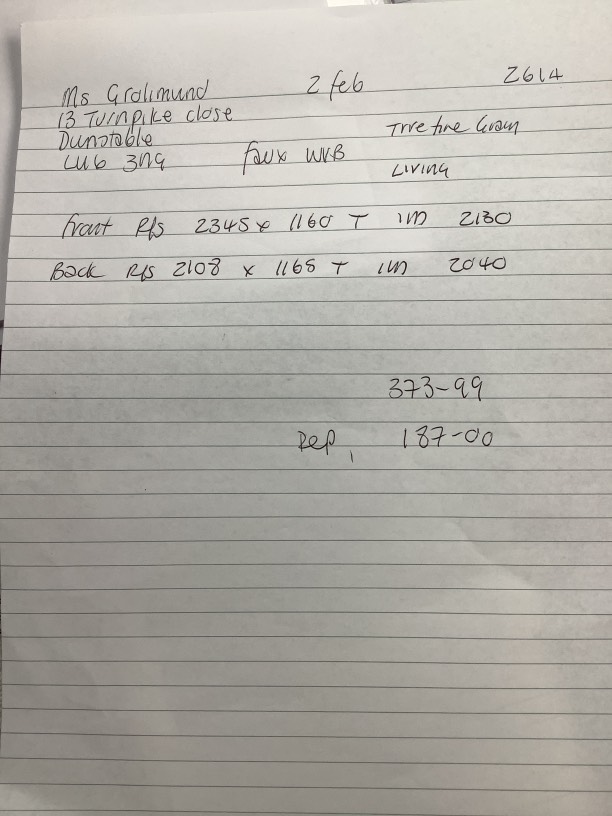 Ms Grolimund 2 feb 2614
13 Turnpike close
Dunstable True fine Grain
LU6 3NG faux WVB
LIVING
front R/s 2345 x 1160 T 1M 2130
Back R/s 2108 x 1165 T 1M 2040
373-99
Dep, 187-00